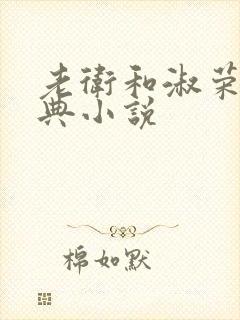 老衛和淑荣
典小说
棉如默